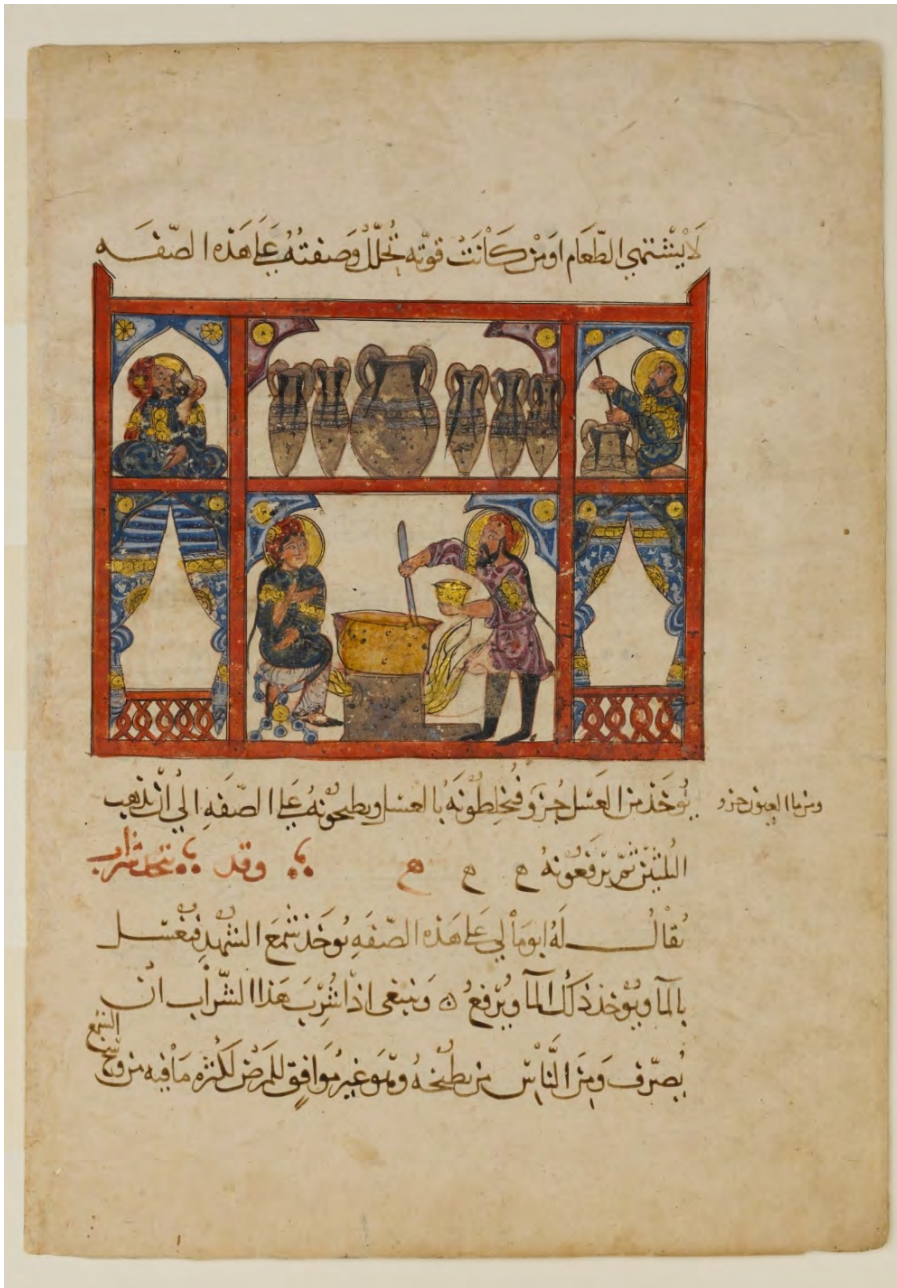 لَا يَشْتَهِي الطَّعَام اوَمَنْ كَانَتْ قوّته تُحلَّلُ وَصفتُهُ عَلَى هَذه الصّفَه
يُوخَذ من العَسَل جُزو فيخلطونَهُ بالعسَل ويطبخونهُ عَلَى الصّفَه الي أنْ يَذهب
ومن ما العيون جزو
الثلثين ثمّ يَرفعُونهُ ه ه ه وقد يتخذ شراب
يُقالُ لَهُ ابومَالي عَلَى هَذه الصّفَه يُوخَذ شمعَ الشهد فيغسَل
بالمآ ويُوخذ ذَلكَ المآ ويُرفعُ ۞ وَينبغي اذا شُربَ هَذا الشّرَاب انْ
يُصرّف وَمنَ النَّاس من يطبخهُ وهُوَ غير مُوَافق للمرَضَى لكثرَه مَا فيه من وسخ
الشمع